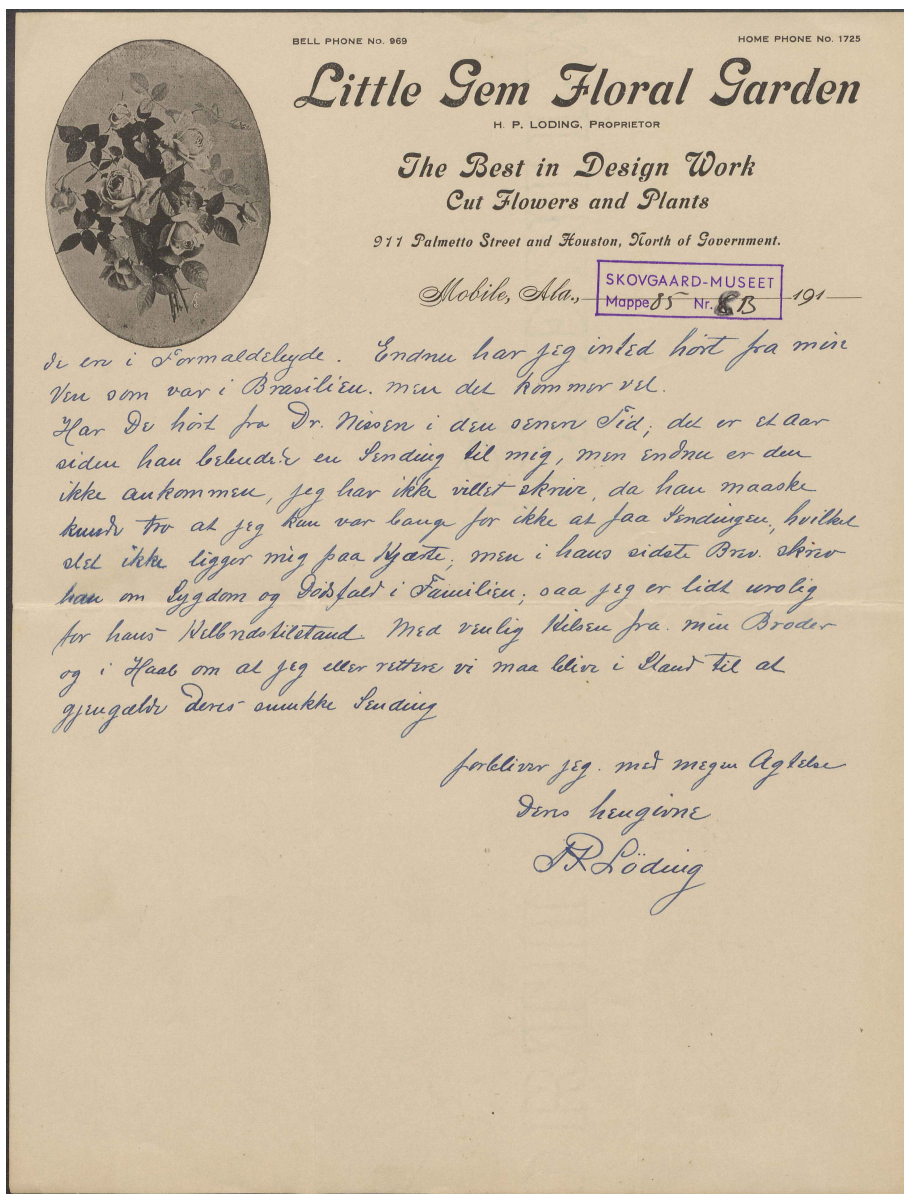 BELL PHONE No. 969
HOME PHONE No. 1725
Little Gem Floral Garden
H. P. LODING, PROPRIETOR
The Best in Design Work
Cut Flowers and Plants
911 Palmetto Street and Houston, North of Government.
Mobile, Ala., 191
SKOVGAARD-MUSEET
Mappe 85 Nr. 8B
de ere i Formaldehyde. Endnu har jeg inted hört fra min
Ven som var i Brasilien. men det kommer vel.
Har De hört fra Dr. Nissen i den senere Tid; det er et Aar
siden han bebudede en Sending til mig, men endnu er den
ikke ankommen, jeg har ikke villet skrive, da han maaske
kunde tro at jeg kun var bange for ikke at faa Sendingen, hvilket
slet ikke ligger mig paa Hjærte; men i hans sidste Brev. skrev
han om Sygdom og Dödsfald i Familien; saa jeg er lidt urolig
for hans Helbredstilstand. Med venlig Hilsen fra min Broder
og i Haab om at jeg eller rettere vi maa blive i Stand til at
gjengælde Deres smukke Sending
forbliver jeg. med megen Agtelse
Deres hengivne
HP Löding